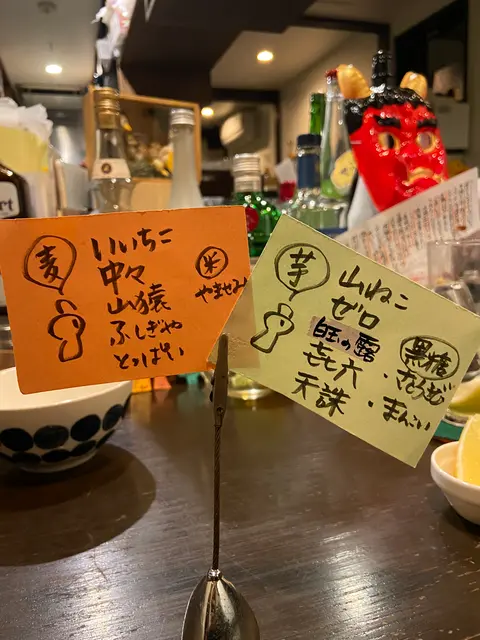 麦
いいちこ
中々
山猿
ふしぎや
とっぱい
米
やませみ
芋
山ねこ
ゼロ
白玉の露
㐂六
天誅
黒糖
・さとうきび
・まんこい
rt